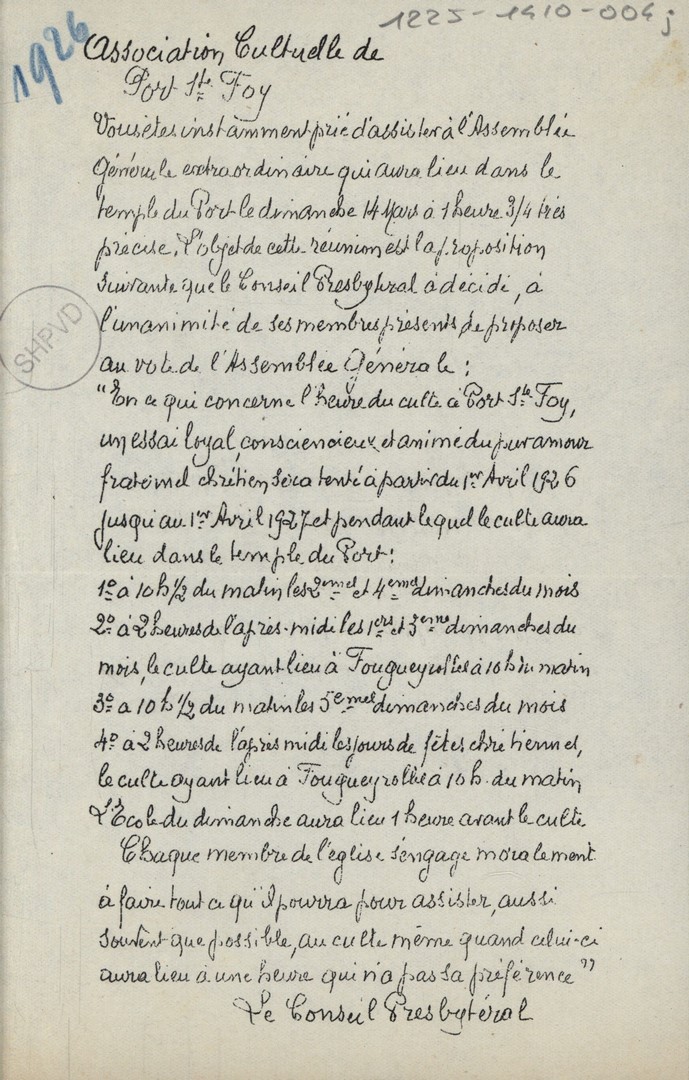 1225-1410-004j
1926
Association Cultuelle de
Port Ste Foy
Vous êtes instamment prié d'assister à l'Assemblée
Générale extraordinaire qui aura lieu dans le
temple du Port le dimanche 14 Mars à 1 heure 3/4 très
précise. L'objet de cette réunion est la proposition
suivante que le Conseil Presbytéral a décidé, à
l'unanimité de ses membres présents, de proposer
au vote de l'Assemblée Générale :
"En ce qui concerne l'heure du culte à Port Ste Foy,
un essai loyal, consciencieux et animé du pur amour
fraternel chrétien sera tenté à partir du 1er Avril 1926
jusqu'au 1er Avril 1927 et pendant lequel le culte aura
lieu dans le temple du Port :
1º à 10 h 1/2 du matin les 2emes et 4emes dimanches du mois
2º à 2 heures de l'après-midi les 1ers et 3eme dimanches du
mois, le culte ayant lieu à Fougueyrolles à 10 h du matin
3º a 10 h 1/2 du matin les 5emes dimanches du mois
4º à 2 heures de l'après midi les jours de fêtes chrétiennes,
le culte ayant lieu à Fougueyrolles à 10 h. du matin
L'Ecole du dimanche aura lieu 1 heure avant le culte
Chaque membre de l'église s'engage moralement
à faire tout ce qu'il pourra pour assister, aussi
souvent que possible, au culte même quand celui-ci
aura lieu à une heure qui n'a pas sa préférence"
Le Conseil Presbytéral
SHPVD